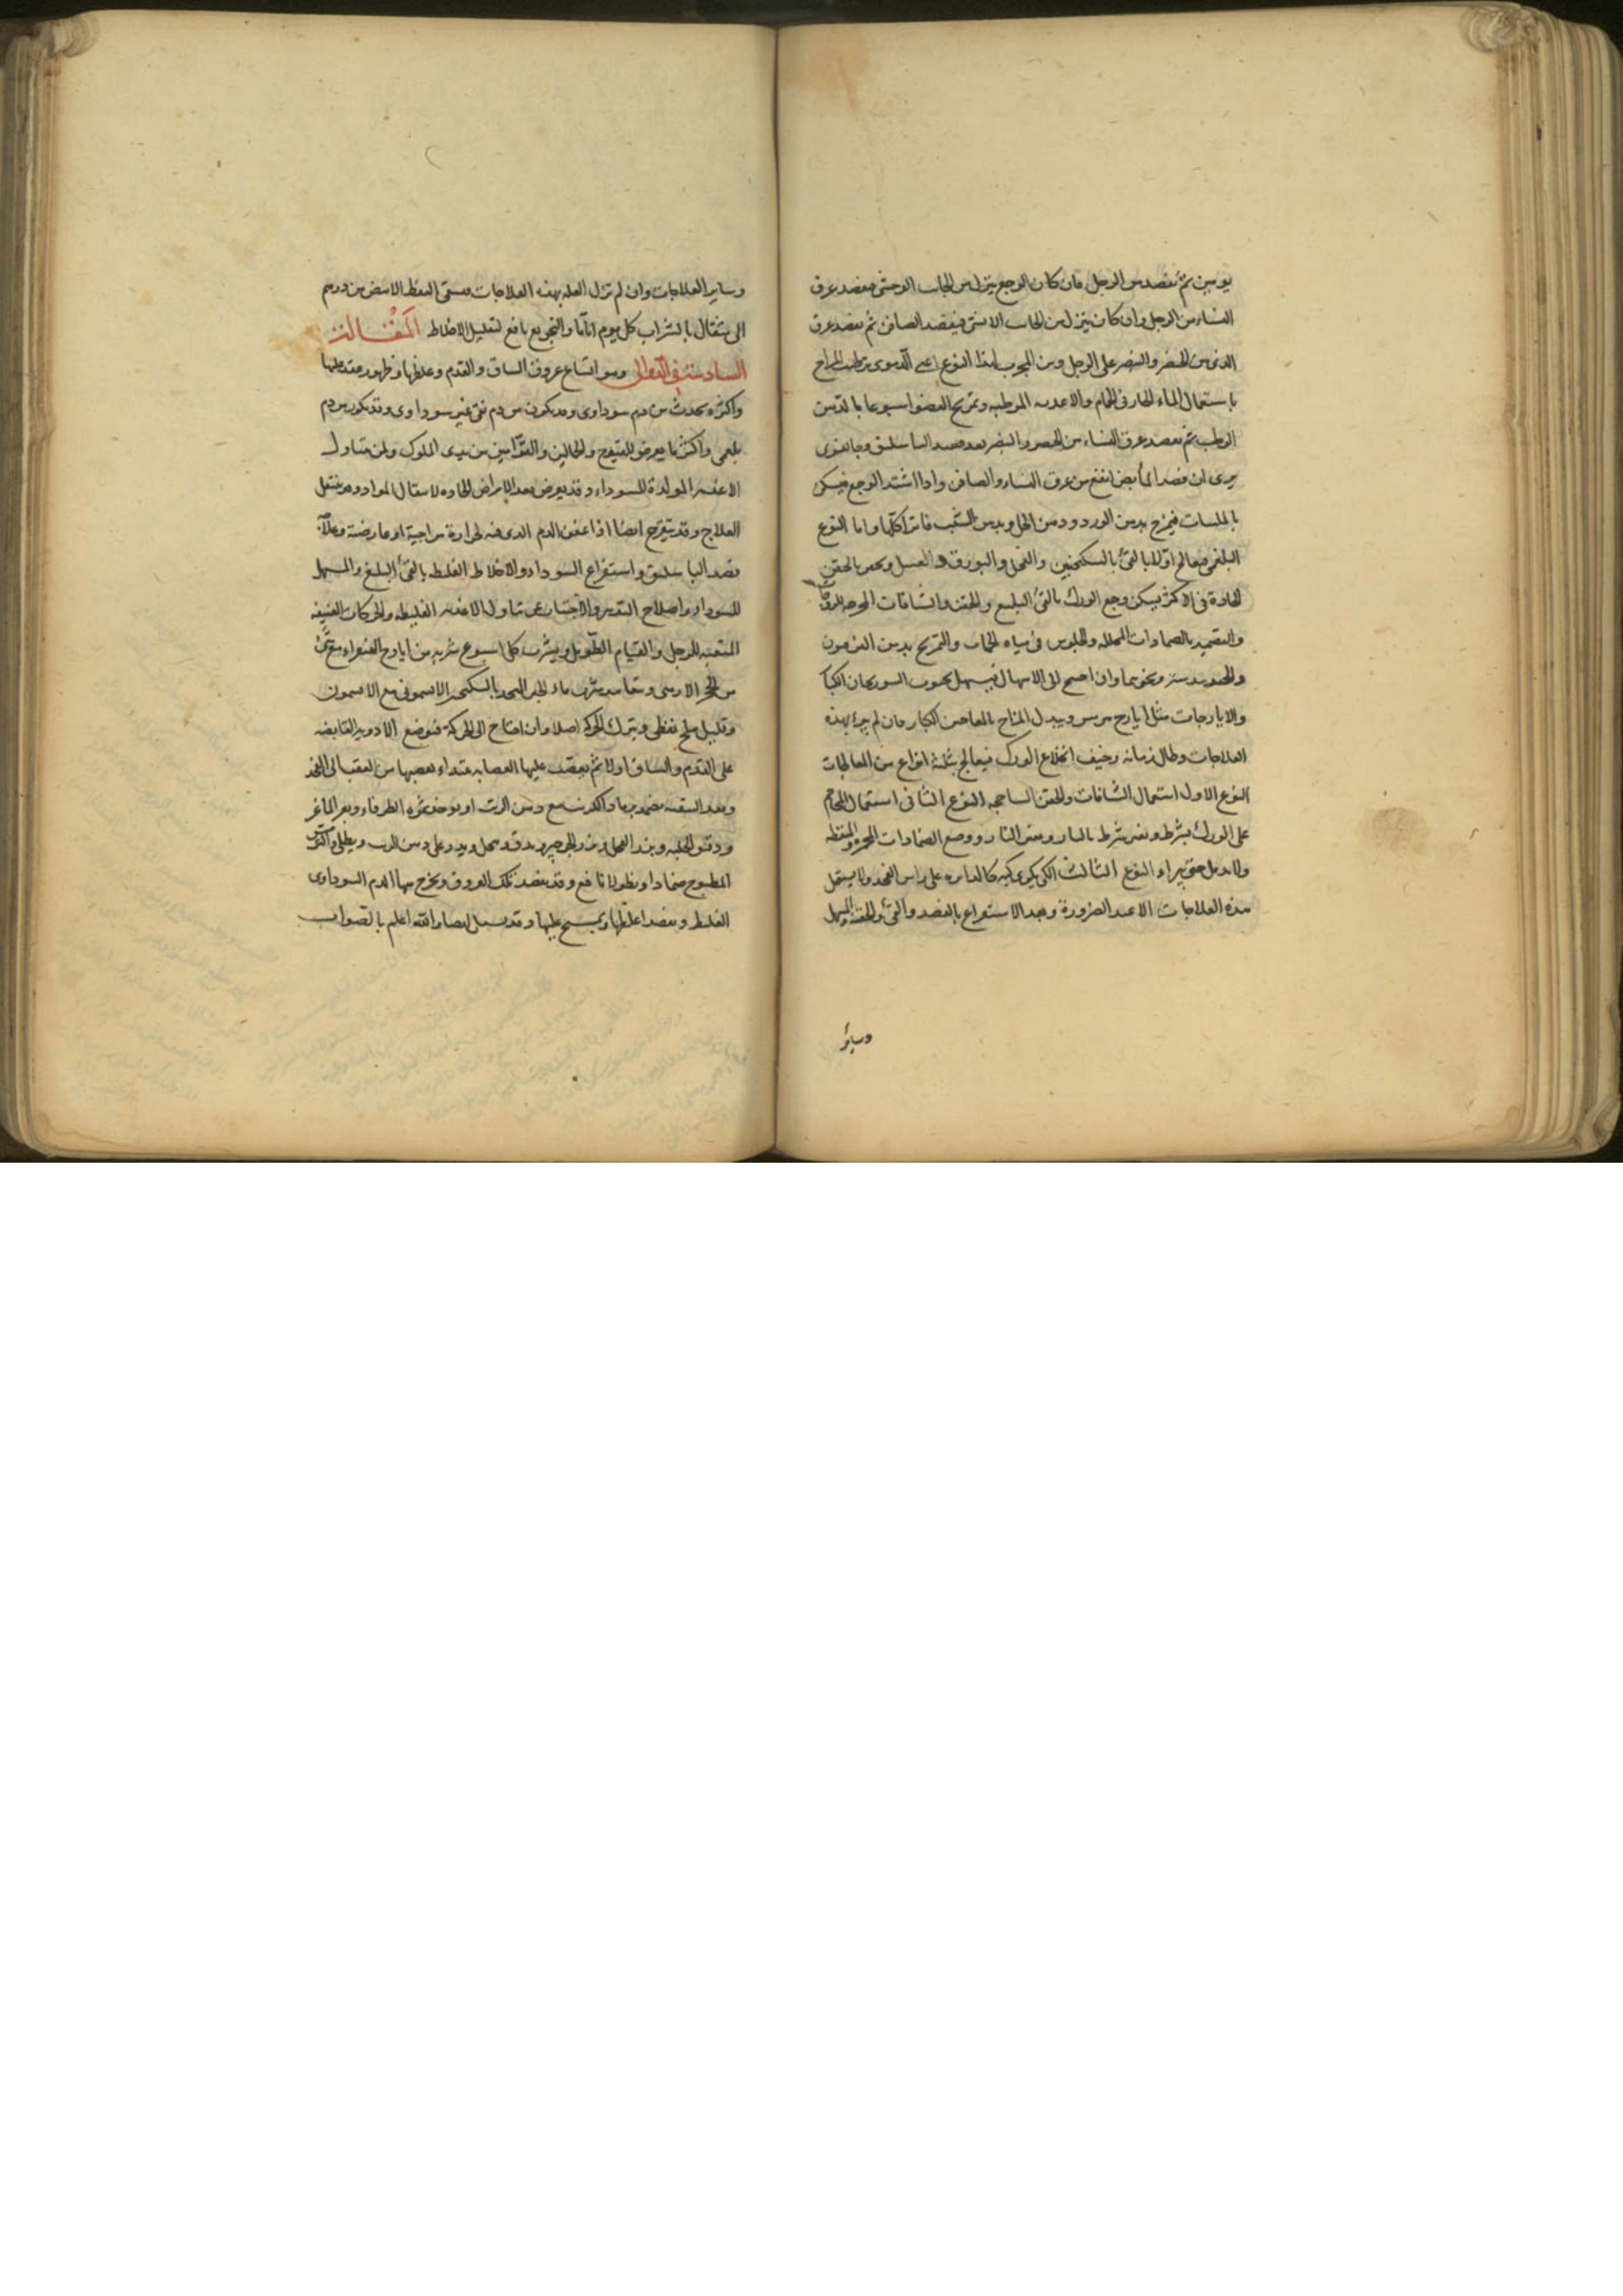 يومين ثم يفصد من الرجل فان كان الوجع ينزل من الجانب الوحشى فيفصد عرق
النساء من الرجل وان كان ينزل من الجانب الانسى فيفصد الصافن ثم يفصد عرق
الذى بين الخنصر والبنصر على الرجل ومن المجرب لهذا النوع اعنى الدموى ترطيب المزاج
باستعمال الماء الحار فى الحمام والاغذيه المرطبه وتمريخ العضو اسبوعا بالدهن
الرطب ثم يفصد عرق النساء من الخنصر والبنصر بعد فصد الباسليق وجالينوس
يرى ان فصد المأبض انفع من عرق النساء والصافن واذا اشتد الوجع فيسكن
بالملينات فيمزج بدهن الورد ودهن الخل وبدهن الشبت فاترا كلها واما النوع
البلغمى فيعالج اولا بالقئ بالسكنجبين والفجل والبورق والعسل ويحقن بالحقن
الحادة فى الاكثر يسكن وجع الورك بالقئ البليغ والحقن والشافات المخرجه للزوجات
والتضميد بالضمادات المحلله والجلوس فى مياه الحمات والتمريخ بدهن الفرفيون
والجندبيدستر ونحوهما وان احتيج الى الاسهال فيسهل بحبوب السورنجان الكبا
والايارجات مثل ايارج هرمس ويبدل المزاج بالمعاجين الكبار فان لم يبرء بهذه
العلاجات وطال زمانه وخيف انخلاع الورك فيعالج بثلثة انواع من المعالجات
النوع الاول استعمال الشافات والحقن الساحجه النوع الثانى استعمال المحاجم
على الورك بشرط وبغير شرط بالنار وبغير النار ووضع الضمادات المحمره والمنفطه
ولا يدمل حتى يبراء النوع الثالث الكى يكوى كيه كالدايره على راس الفخذ ولا يستعمل
هذه العلاجات الا عند الضرورة وبعد الاستفراغ بالفصد والقئ والحقنه والمسهل
وساير
وساير العلاجات وان لم تزل العله بهذه العلاجات فيسقى النفط الابيض من درهم
الى مثقال بالشراب كل يوم اياما والتجويع نافع لتقليل الاخلاط المقالة
السادسة فى الدوالى وهو اتساع عروق الساق والقدم وغلظها وظهور عقد عليها
واكثره يحدث من دم سوداوى وقد يكون من دم نقى غير سوداوى وقد يكون من دم
بلغمى واكثر ما يعرض للفيوج والحمالين والقوامين بين يدى الملوك ولمن يتناول
الاغذيه المولدة للسوداء وقد يعرض بعد الامراض الحاده لانتقال المواد وقد ينتقل
العلاج وقد يتقرح ايضا اذا عفن الدم الذى فيه لحرارة مزاجية او عارضة وعلاجه
فصد الباسليق واستفراغ السوداء والاخلاط الغليظه بالقئ البليغ والمسهل
للسوداء واصلاح التدبير والاجتناب عن تناول الاغذيه الغليظه والحركات العنيفه
المتعبه للرجل والقيام الطويل ويشرب كل اسبوع شربه من ايارج الفيقراء مع شئ
من الحجر الارمنى وتعاهد شرب ماء الجبن المتخذ بالسكنجبين الافتيمونى مع الافتيمون
وقليل ملح نفطى ويترك الحركه اصلا وان احتاج الى الحركة فتوضع الادويه القابضه
على القدم والساق اولا ثم يعصب عليها العصابه مبتداء بعصبها من العقب الى الفخذ
وبعد التنقيه يضمد برماد الكرنب مع دهن الزيت او يوخذ ثمره الطرفاء وبعر الماعز
ودقيق الحلبه وبذر الفجل وبذر الجرجير يدق وينخل ويذر على دهن الزيت ويطلى والكرنب
المطبوخ ضمادا ونطولا نافع وقد يفصد تلك العروق ويخرج منها الدم السوداوى
الغليظ ويفصد اغلظها ويمسح عليها وقد يسل ايضا والله اعلم بالصواب